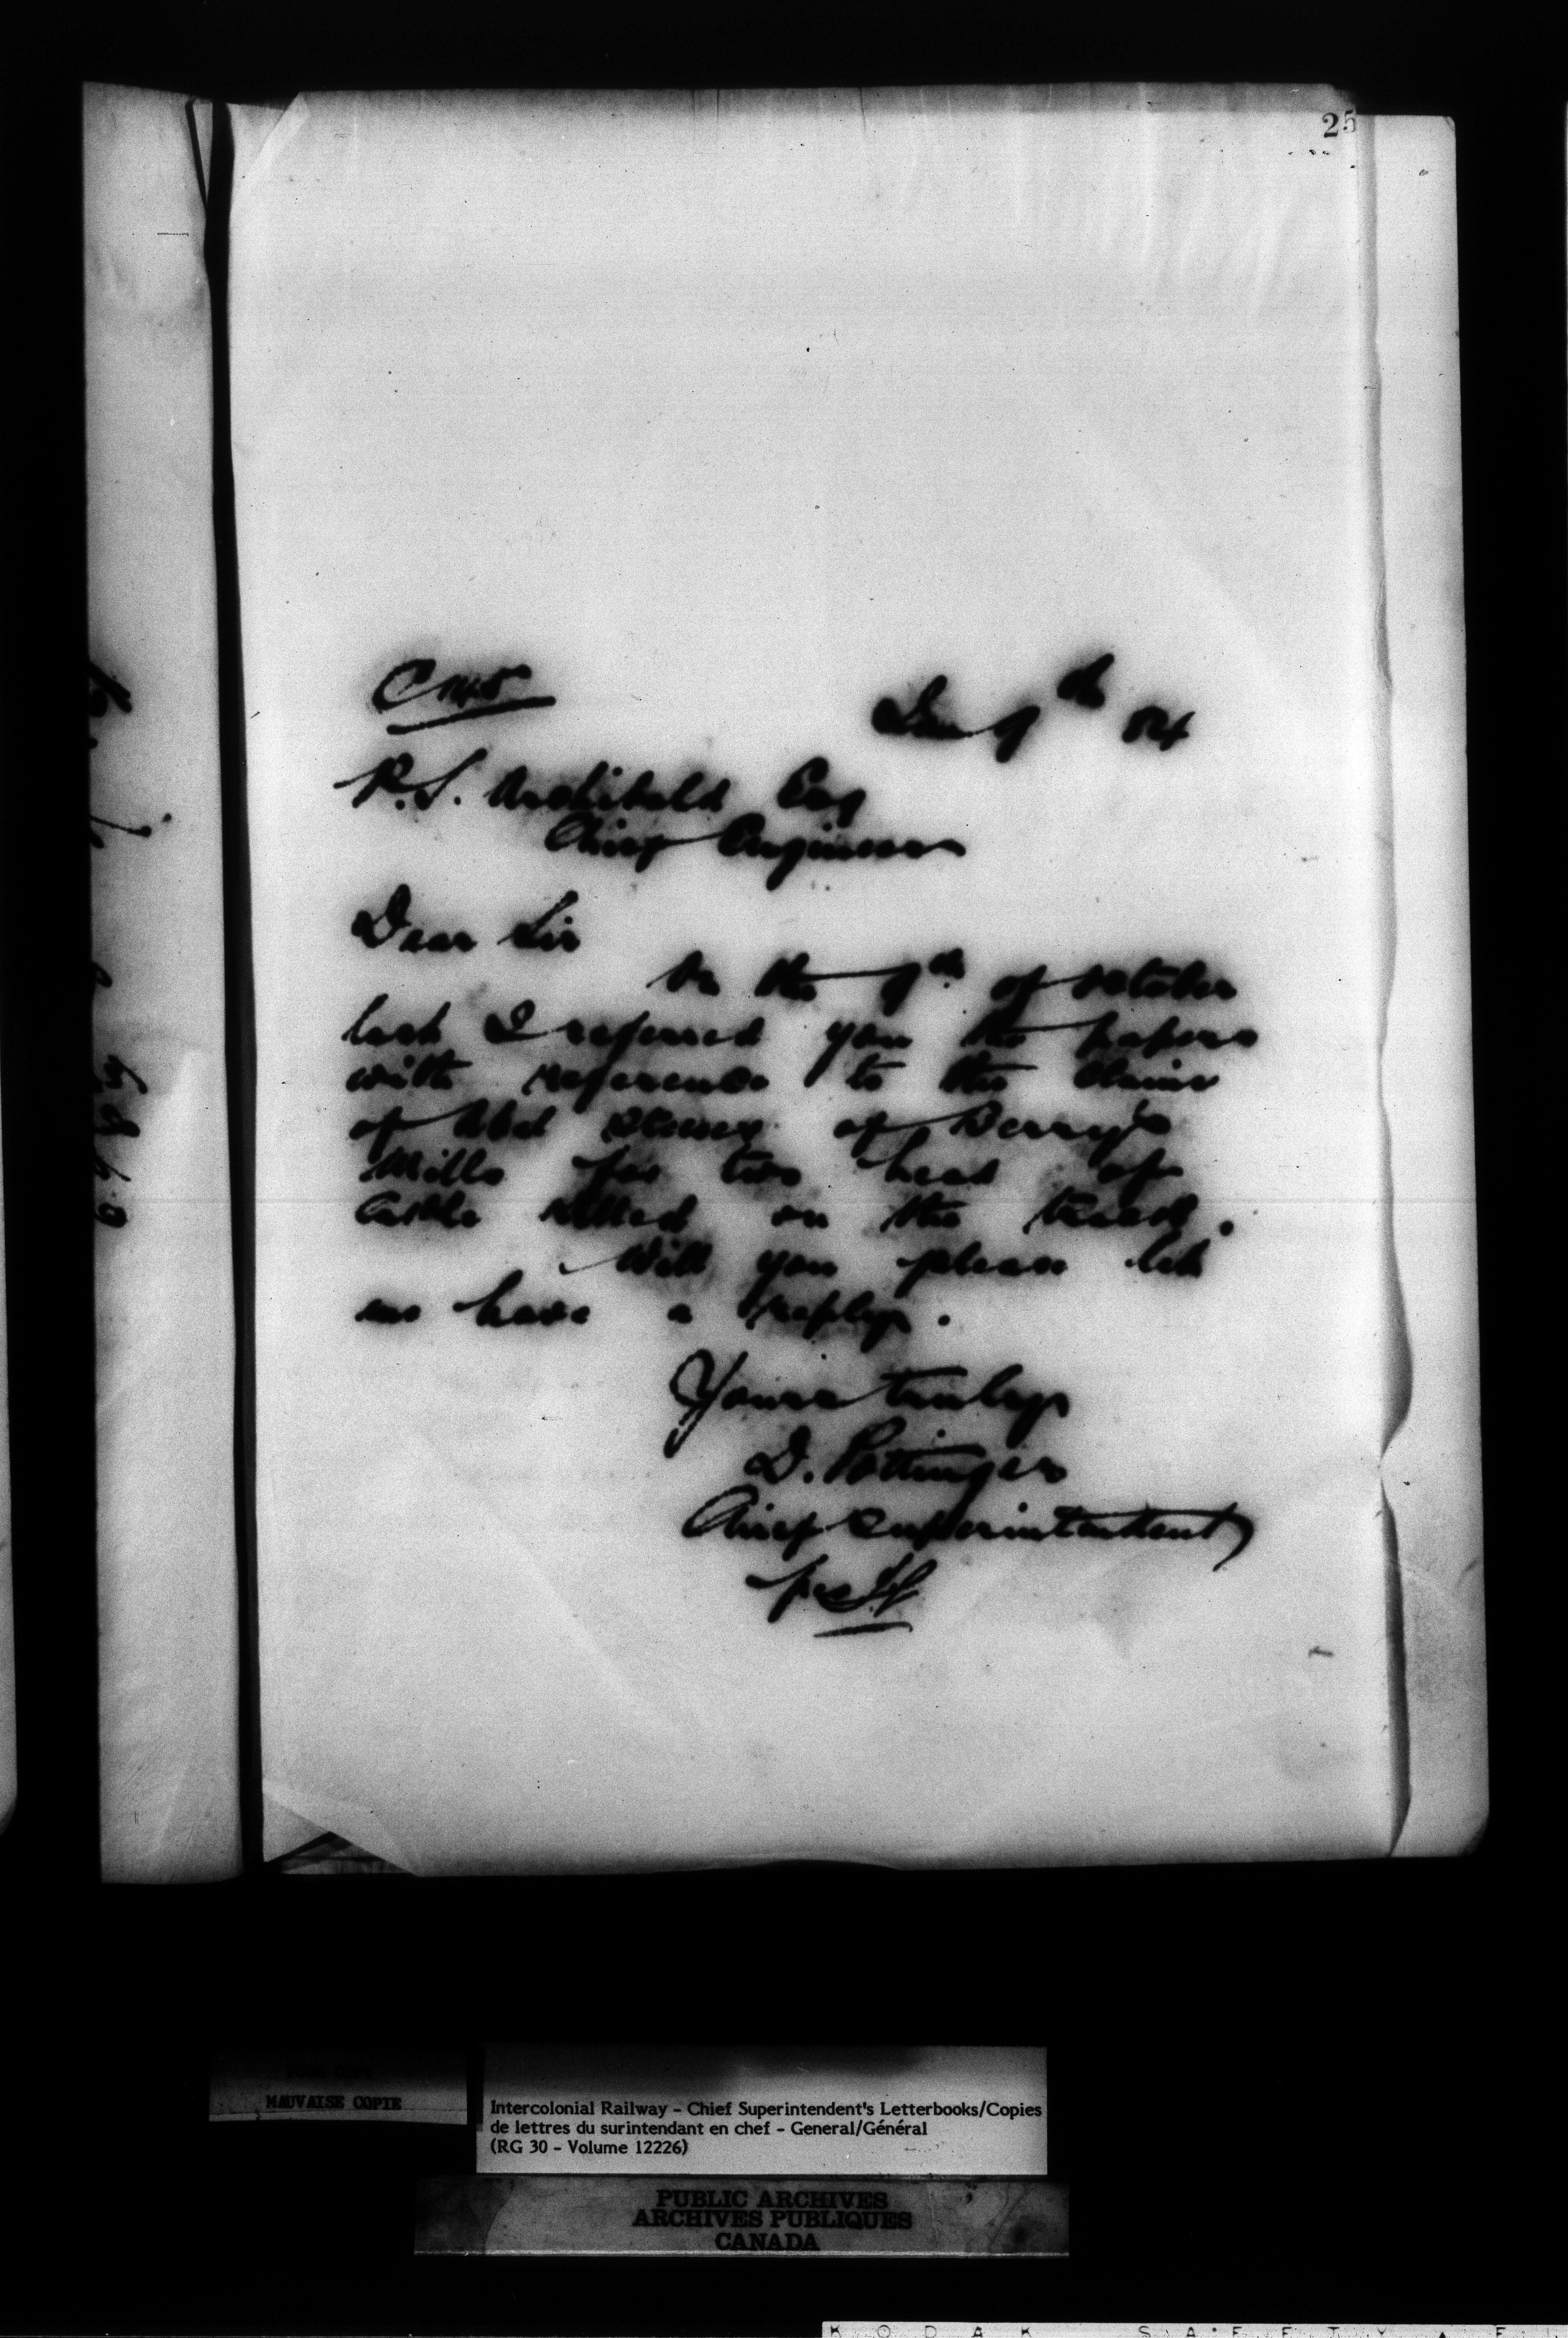 25
Jan 9th 84
P.S. Archibald Esq
Chief Engineer
Dear Sir
On the 9th of October
last I referred you the papers
with reference to the claim
of Abel of Berry's
Mills for two head of
Cattle killed on the track.
Will you please let
me have a reply.
Yours truly
D. Pottinger
Chief Superintendent
per
MAUVAISE COPIE
Intercolonial Railway – Chief Superintendent's Letterbooks/Copies
de lettres du surintendant en chef – General/Général
(RG 30 – Volume 12226)
PUBLIC ARCHIVES
ARCHIVES PUBLIQUES
CANADA
KODAK SAFETY